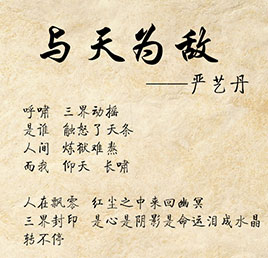 与天为敌
——严艺丹
呼啸 三界动摇
是谁 触怒了天条
人间 炼狱难熬
而我 仰天 长啸
人在飘零 红尘之中来回幽冥
三界封印 是心是阴影是命运泪成水晶
转不停